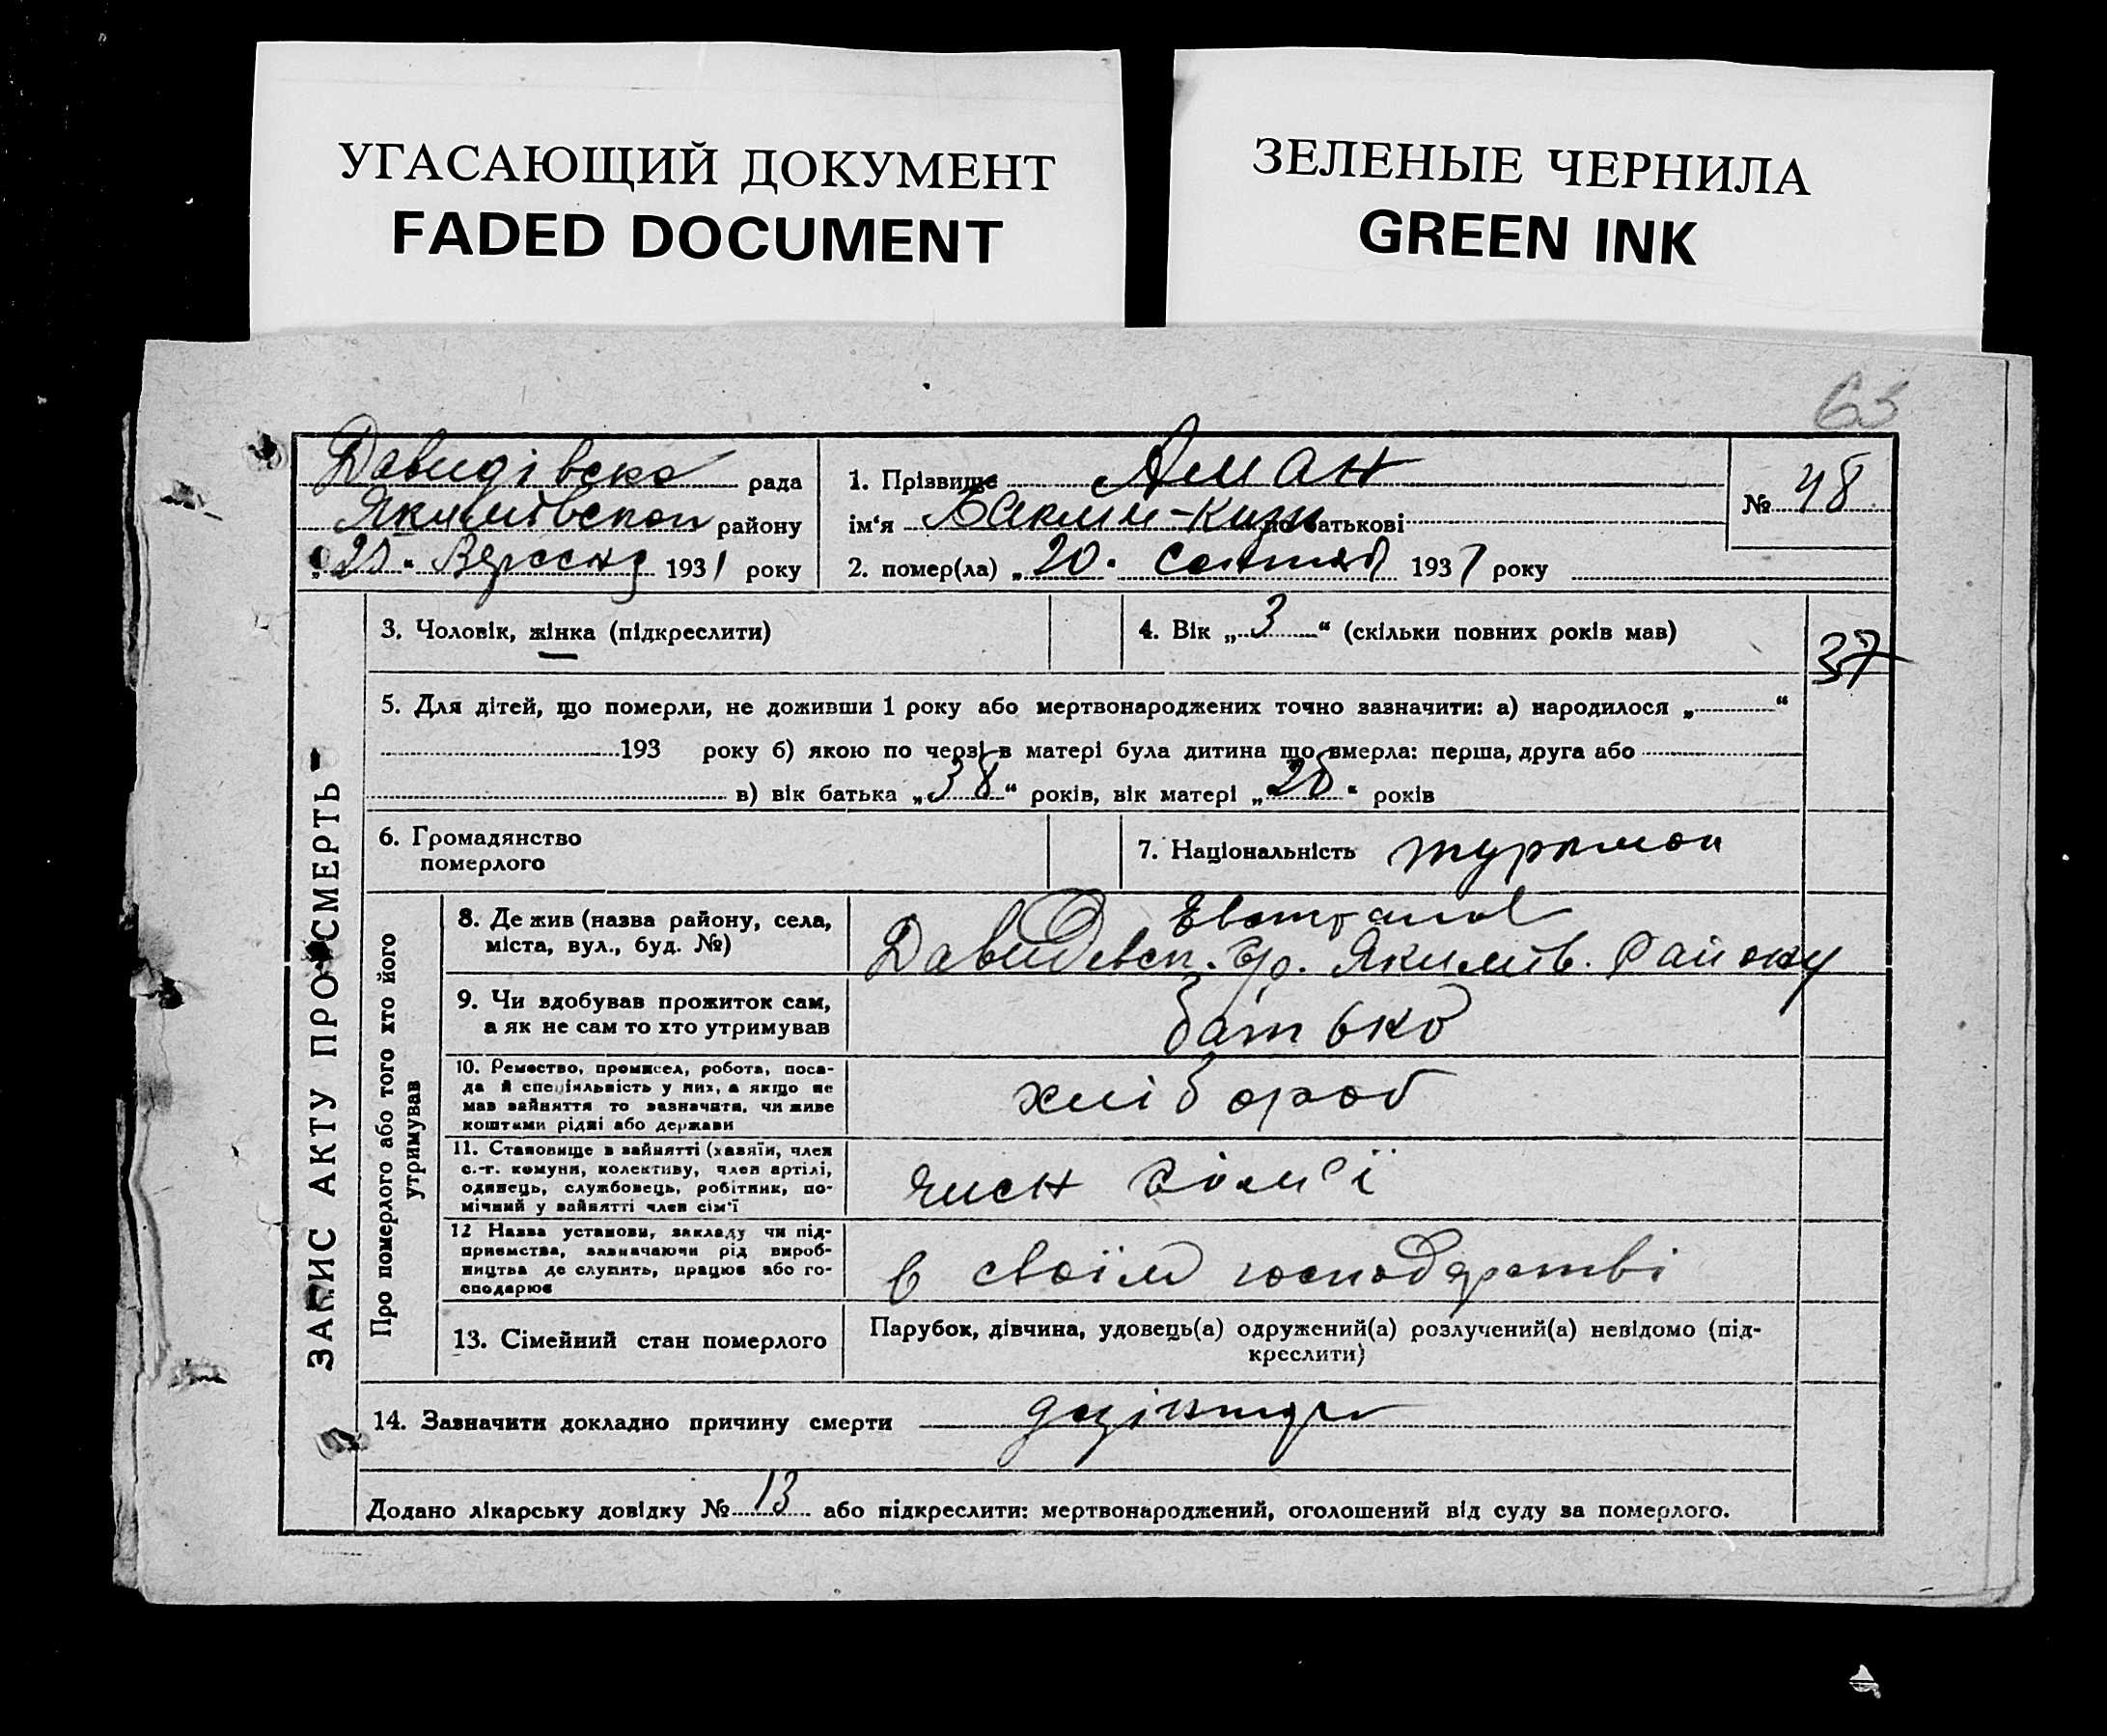 УГАСАЮЩИЙ ДОКУМЕНТ
FADED DOCUMENT
ЗЕЛЕНЫЕ ЧЕРНИЛА
GREEN INK
63
Давидівска рада
Якимівскои району
193 року
1. Прізвище Аман
ім‘я по батькові
2. помер(ла) „20“ 193 року
№ 48
ЗАПИС АКТУ ПРО СМЕРТЬ
3. Чоловік, жінка (підкреслити)
4. Вік „3“ (скільки повних років мав)
37
5. Для дітей, що померли, не доживши 1 року або мертвонароджених точно зазначити: а) народилося „ “
193 року б) якою по черзі в матері була дитина що вмерла: перша, друга або
в) вік батька „38“ років, вік матері „28“ років
6. Громадянство
померлого
7. Національність
Про померлого або того хто його
утримував
8. Де жив (назва району, села,
міста, вул., буд. №)
Якимів. району
9. Чи вдобував прожиток сам,
а як не сам то хто утримував
батько
10. Ремество, промисел, робота, поса-
да й спеціяльність у них, а якщо не
мав зайняття то зазначити, чи живе
коштами рідні або держави
хлібороб
11. Становище в зайнятті (хазяїн, член
с.-г. комуни, колективу, член артілі,
одинець, службовець, робітник, по-
мічний у зайнятті член сім‘ї
член сім'ї
12 Назва установи, закладу чи під-
приємства, зазначаючи рід вироб-
ництва де служить, працює або го-
сподарює
в своїм господарстві
13. Сімейний стан померлого
Парубок, дівчина, удовець(а) одружений(а) розлучений(а) невідомо (під-
креслити)
14. Зазначити докладно причину смерти
Додано лікарську довідку № 13 або підкреслити: мертвонароджений, оголошений від суду за померлого.